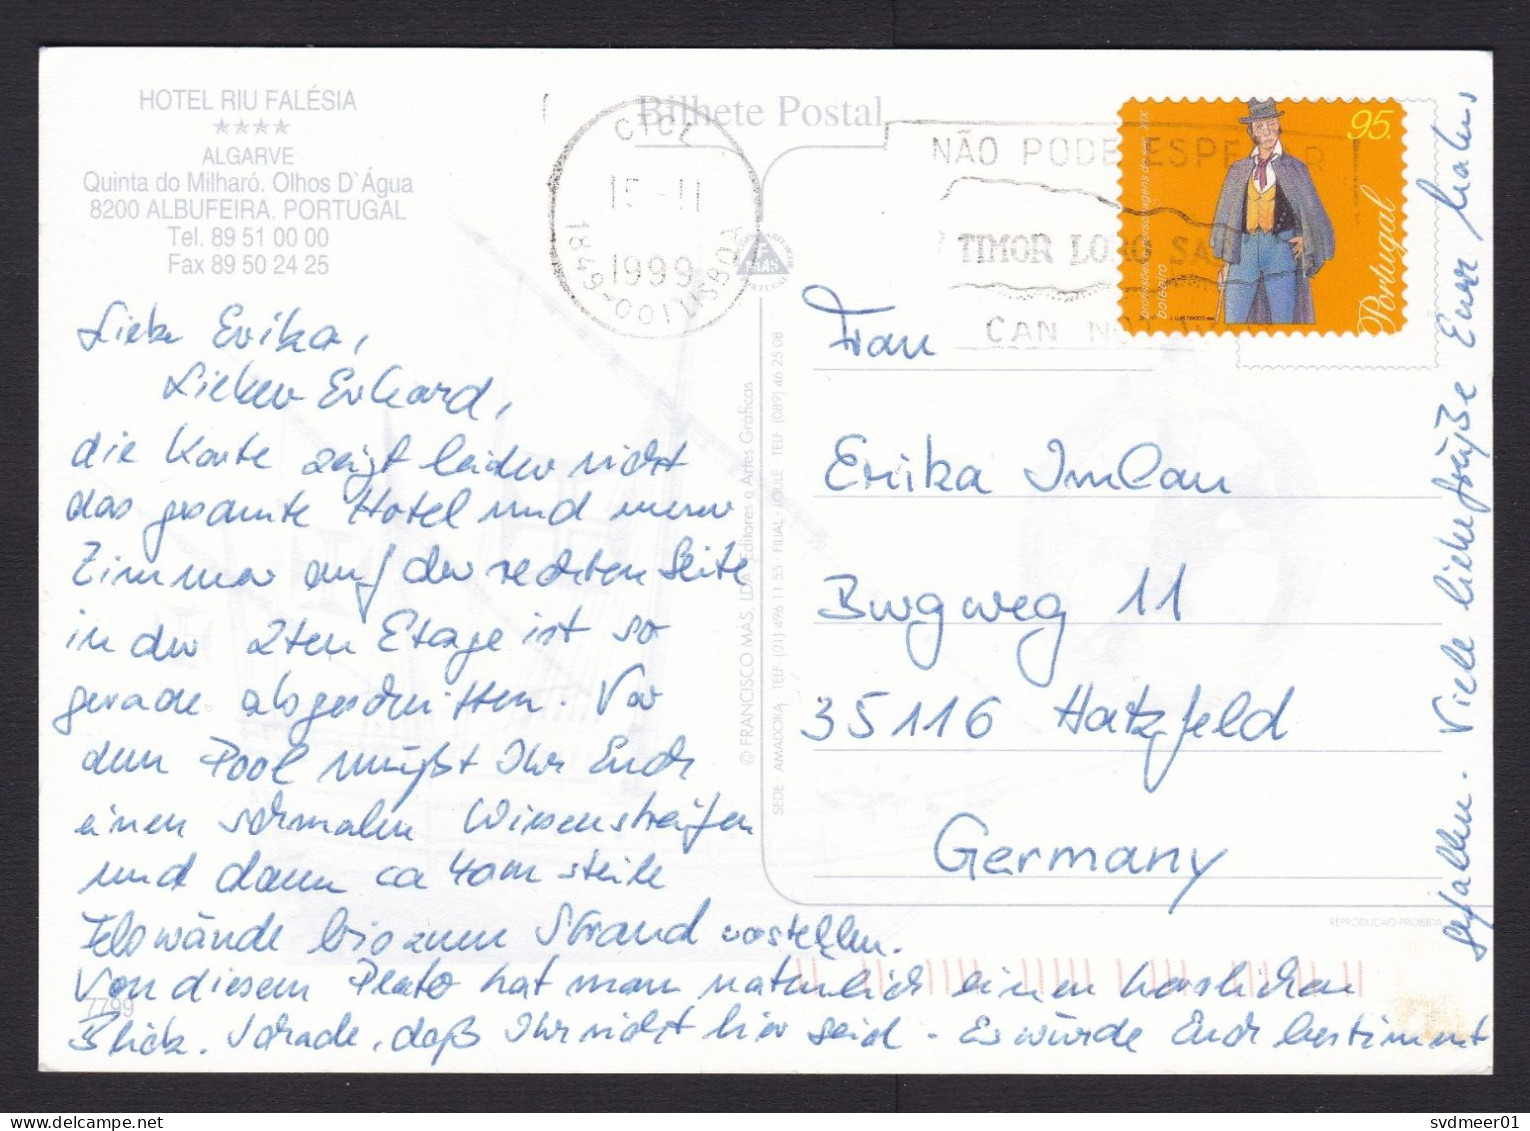 HOTEL RIU FALÉSIA
★★★★
ALGARVE
Quinta do Milharó. Olhos D`Água
8200 ALBUFEIRA. PORTUGAL
Tel. 89 51 00 00
Fax 89 50 24 25
Liebe Erika,
Lieber Erhard,
die Karte zeigt leider nicht
das gesamte Hotel und unser
Zimmer auf der rechten Seite
in der 2ten Etage ist so
gerade abgeschnitten. Vor
dem Pool müßt Ihr Euch
einen schmalen Wiesenstreifen
und dann ca 40m steile
Felswände bis zum Strand vorstellen.
Von diesem Platz hat man natürlich einen herrlichen
Blick. Schade, daß Ihr nicht hier seid. Es würde Euch bestimmt
gefallen. Viele liebe Grüße Eure
7799
Bilhete Postal
CTCL
15-11
1999
1849-001 LISBOA
NÃO PODE ESPERAR
TIMOR LORO SA
CAN NO
95.
Portugal
boleeiro
© FRANCISCO MAS, LDA. Editores e Artes Gráficas
SEDE - AMADORA, TELF (01) 496 11 55 - FILIAL - LOULE TELF (089) 46 25 08
Frau
Erika Imlau
Burgweg 11
35116 Hatzfeld
Germany
REPRODUÇÃO PROIBIDA
svdmeer01